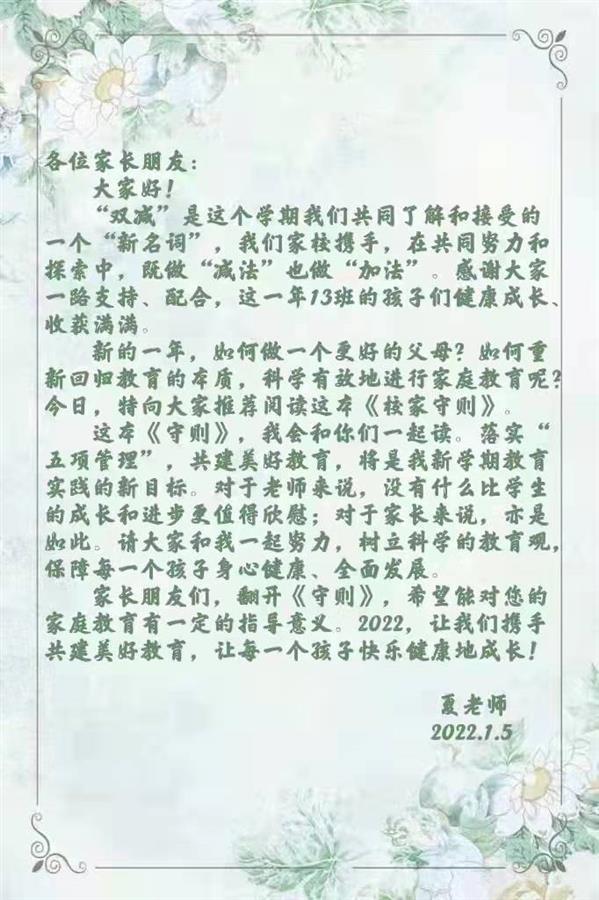 各位家长朋友：
大家好！
“双减”是这个学期我们共同了解和接受的
一个“新名词”，我们家校携手，在共同努力和
探索中，既做“减法”也做“加法”。感谢大家
一路支持、配合，这一年13班的孩子们健康成长、
收获满满。
新的一年，如何做一个更好的父母？如何重
新回归教育的本质，科学有效地进行家庭教育呢？
今日，特向大家推荐阅读这本《校家守则》。
这本《守则》，我会和你们一起读。落实“
五项管理”，共建美好教育，将是我新学期教育
实践的新目标。对于老师来说，没有什么比学生
的成长和进步更值得欣慰；对于家长来说，亦是
如此。请大家和我一起努力，树立科学的教育观，
保障每一个孩子身心健康、全面发展。
家长朋友们，翻开《守则》，希望能对您的
家庭教育有一定的指导意义。2022，让我们携手
共建美好教育，让每一个孩子快乐健康地成长！
夏老师
2022.1.5